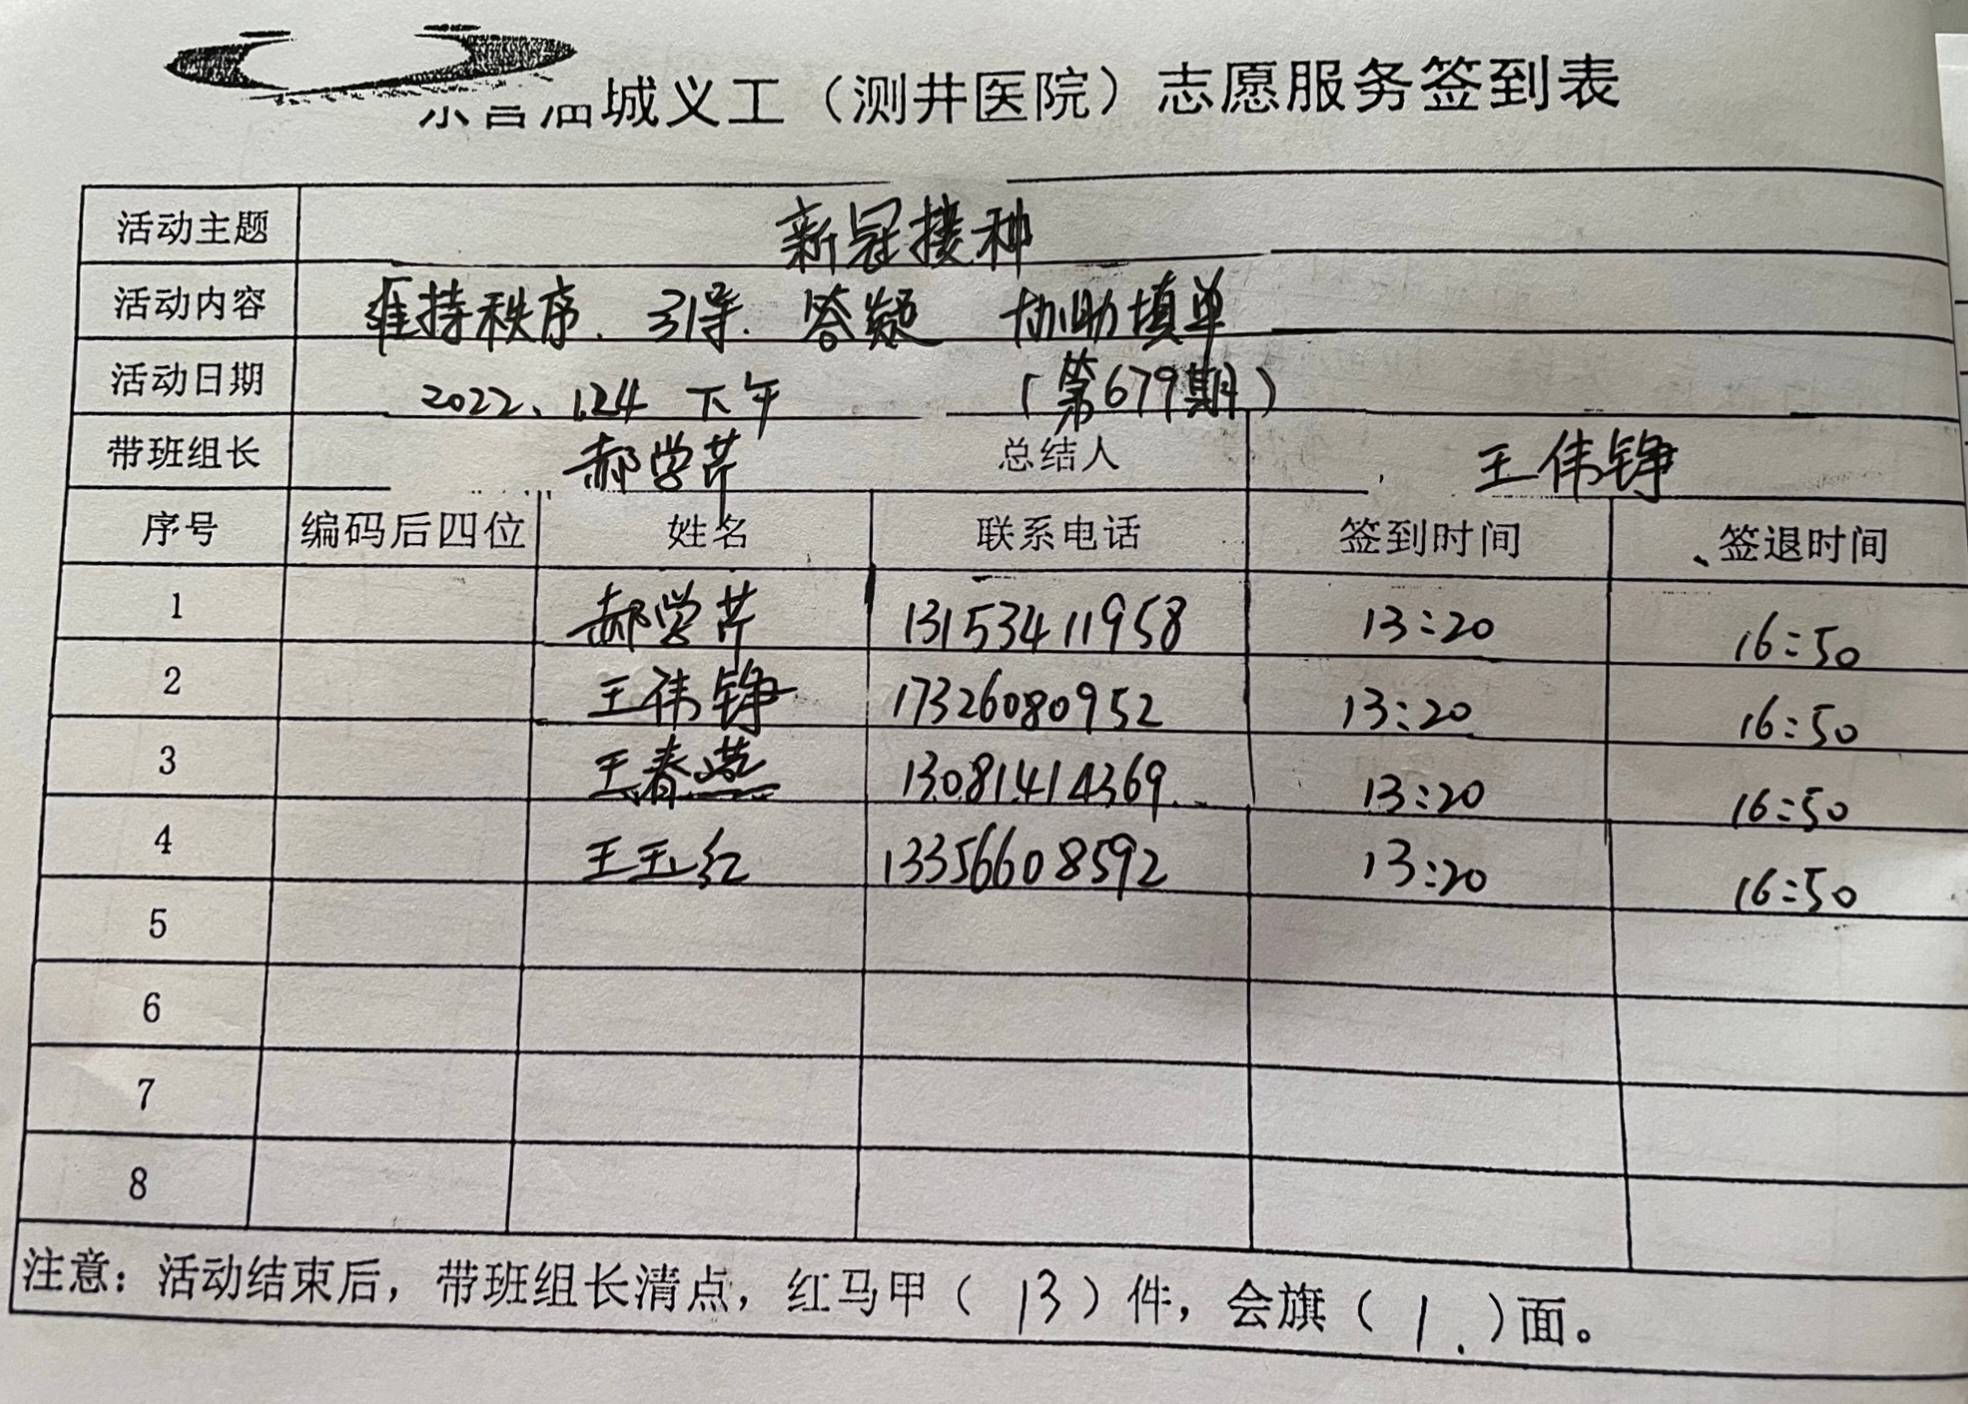 城义工（测井医院）志愿服务签到表
活动主题 新冠接种
活动内容 维持秩序. 引导. 答疑 协助填单
活动日期 2022、1.24 下午 （第679期）
带班组长 郝学芹 总结人 王伟铮
序号 编码后四位 姓名 联系电话 签到时间 签退时间
1 郝学芹 13153411958 13:20 16:50
2 王伟铮 17326080952 13:20 16:50
3 王春燕 13081414369 13:20 16:50
4 王玉红 13356608592 13:20 16:50
5
6
7
8
注意：活动结束后，带班组长清点，红马甲（ 13 ）件，会旗（ 1. ）面。